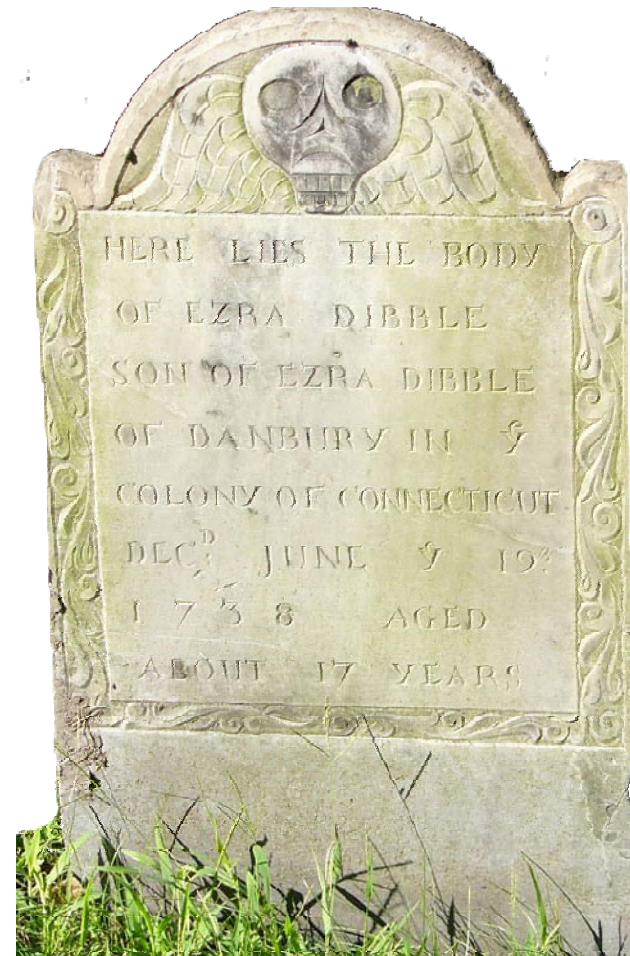 HERE LIES THE BODY
OF EZRA DIBBLE
SON OF EZRA DIBBLE
OF DANBURY IN yᵉ
COLONY OF CONNECTICUT
DECᴰ JUNE yᵉ 19ᵗʰ
1738 AGED
ABOUT 17 YEARS